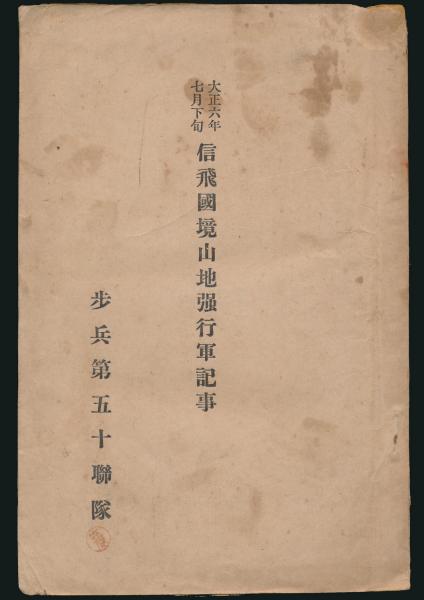 大正六年
七月下旬
信飛國境山地强行軍記事
步兵第五十聯隊